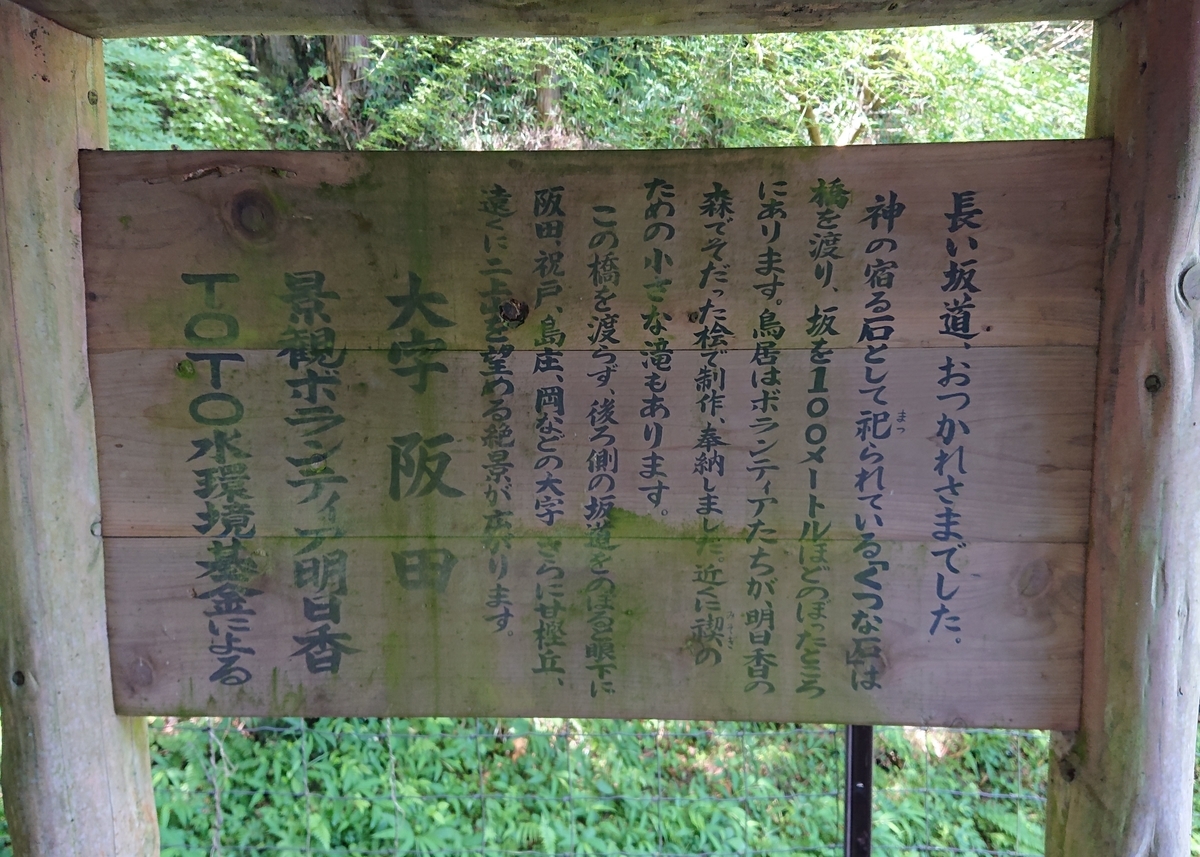 長い坂道、おつかれさまでした。
神の宿る石として祀られている「くつな石」は
まつ
橋を渡り、坂を100メートルほどのぼたところ
にあります。鳥居はボランティアたちが、明日香の
森でそだった桧で制作、奉納しました。近くに禊の
みそぎ
ための小さな滝もあります。
この橋を渡らず、後ろ側の坂道をのぼると眼下に
阪田、祝戸、島庄、岡などの大字、さらに甘樫丘、
遠くに二上山を望める絶景が広がります。
大字 阪田
景観ボランティア明日香
TOTO水環境基金による